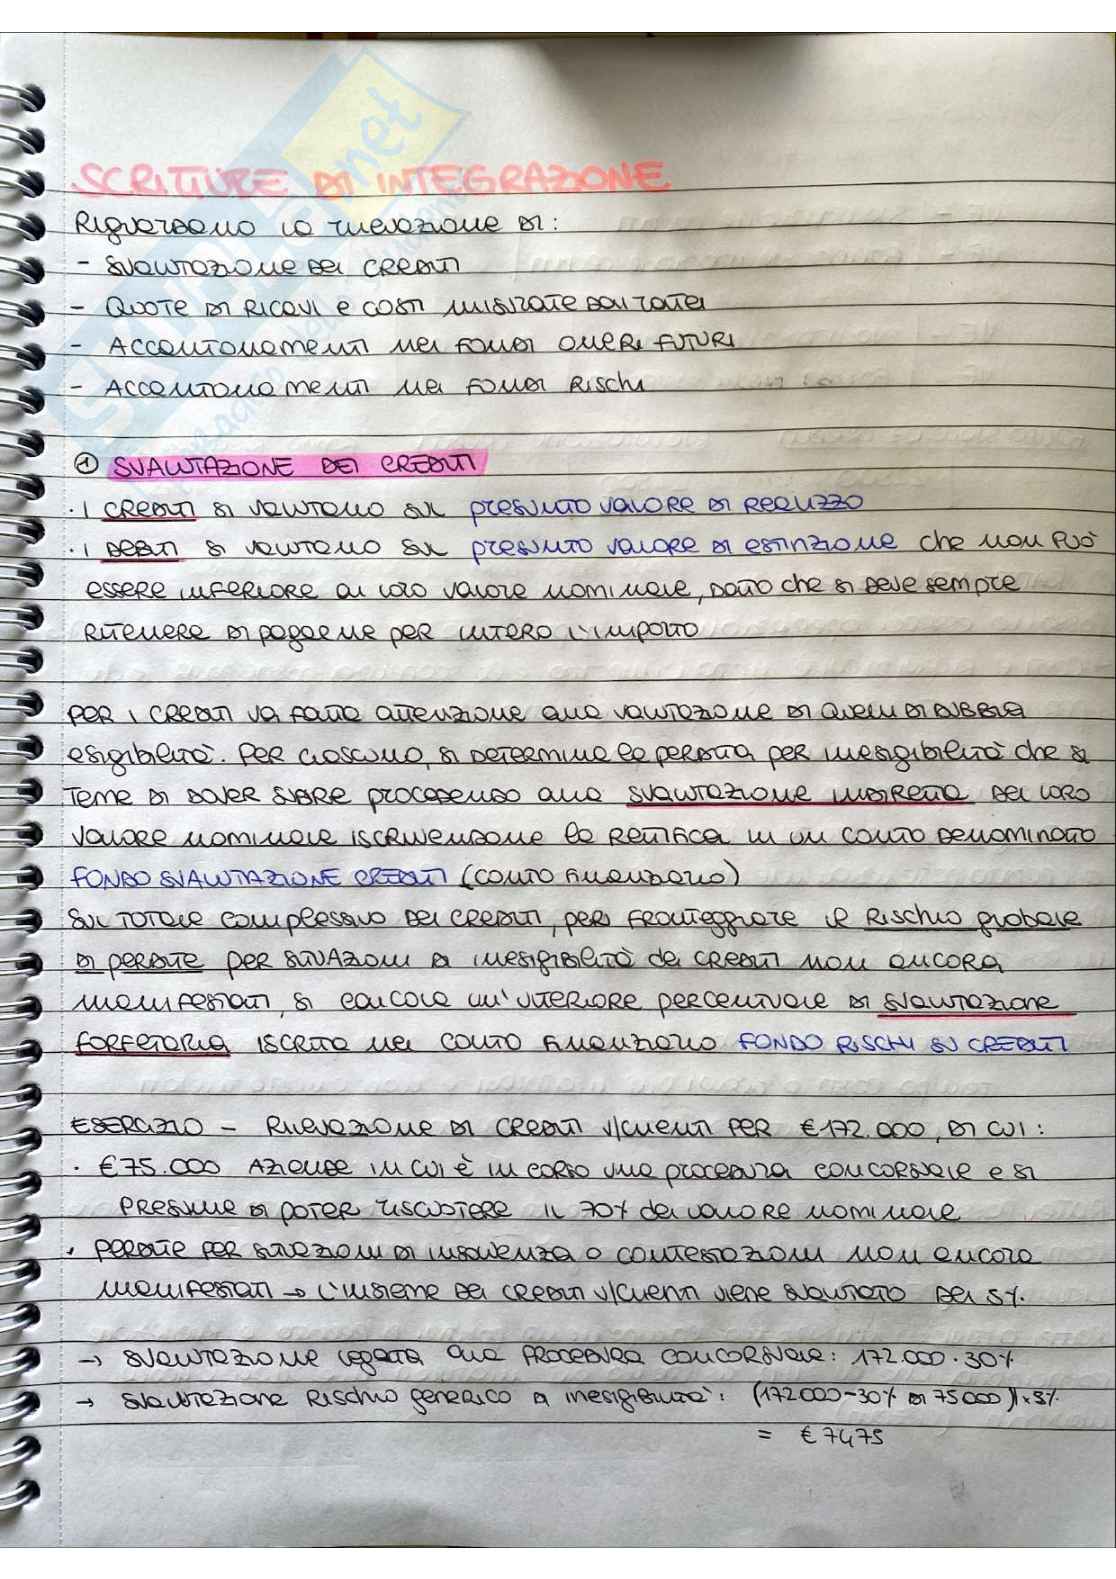 SCRITTURE DI INTEGRAZIONE
Riguardano la rilevazione di:
- SVALUTAZIONE DEI CREDITI
- QUOTE DI RICAVI e COSTI MISURATE DAI RATEI
- ACCANTONAMENTI NEI FONDI ONERI FUTURI
- ACCANTONAMENTI NEI FONDI RISCHI
① SVALUTAZIONE DEI CREDITI
· I CREDITI SI VALUTANO SUL PRESUNTO VALORE DI REALIZZO
· I DEBITI SI VALUTANO SUL PRESUNTO VALORE DI ESTINZIONE CHE NON PUÒ
ESSERE INFERIORE AL LORO VALORE NOMINALE, DATO CHE SI DEVE SEMPRE
RITENERE DI PAGARNE PER INTERO L'IMPORTO
PER I CREDITI VA FATTA ATTENZIONE ALLA VALUTAZIONE DI QUELLI DI DUBBIA
ESIGIBILITÀ. PER CIASCUNO, SI DETERMINA LA PERDITA PER INESIGIBILITÀ CHE SI
TEME DI DOVER SUBIRE PROCEDENDO ALLA SVALUTAZIONE INDIRETTA DEL LORO
VALORE NOMINALE ISCRIVENDONE LA RETTIFICA IN UN CONTO DENOMINATO
FONDO SVALUTAZIONE CREDITI (CONTO FINANZIARIO)
SUL TOTALE COMPLESSIVO DEI CREDITI, PER FRONTEGGIARE IL RISCHIO GLOBALE
DI PERDITE PER SITUAZIONI DI INESIGIBILITÀ DEI CREDITI NON ANCORA
MANIFESTATI, SI CALCOLA UN'ULTERIORE PERCENTUALE DI SVALUTAZIONE
FORFETARIA ISCRITTA NEL CONTO FINANZIARIO FONDO RISCHI SU CREDITI
ESERCIZIO - RILEVAZIONE DI CREDITI V/CLIENTI PER €172.000, DI CUI:
· €75.000 AZIENDE IN CUI È IN CORSO UNA PROCEDURA CONCORSUALE E SI
PRESUME DI POTER RISCUOTERE IL 70% DEL VALORE NOMINALE
· PERDITE PER SITUAZIONI DI INSOLVENZA O CONTESTAZIONI NON ANCORA
MANIFESTATI → L'INSIEME DEI CREDITI V/CLIENTI VIENE SVALUTATO DEL 5%.
→ SVALUTAZIONE LEGATA ALLA PROCEDURA CONCORSUALE: 172.000 · 30%
→ SVALUTAZIONE RISCHIO GENERICO DI INESIGIBILITÀ: (172000-30% DI 75000) x 5%
= € 7475